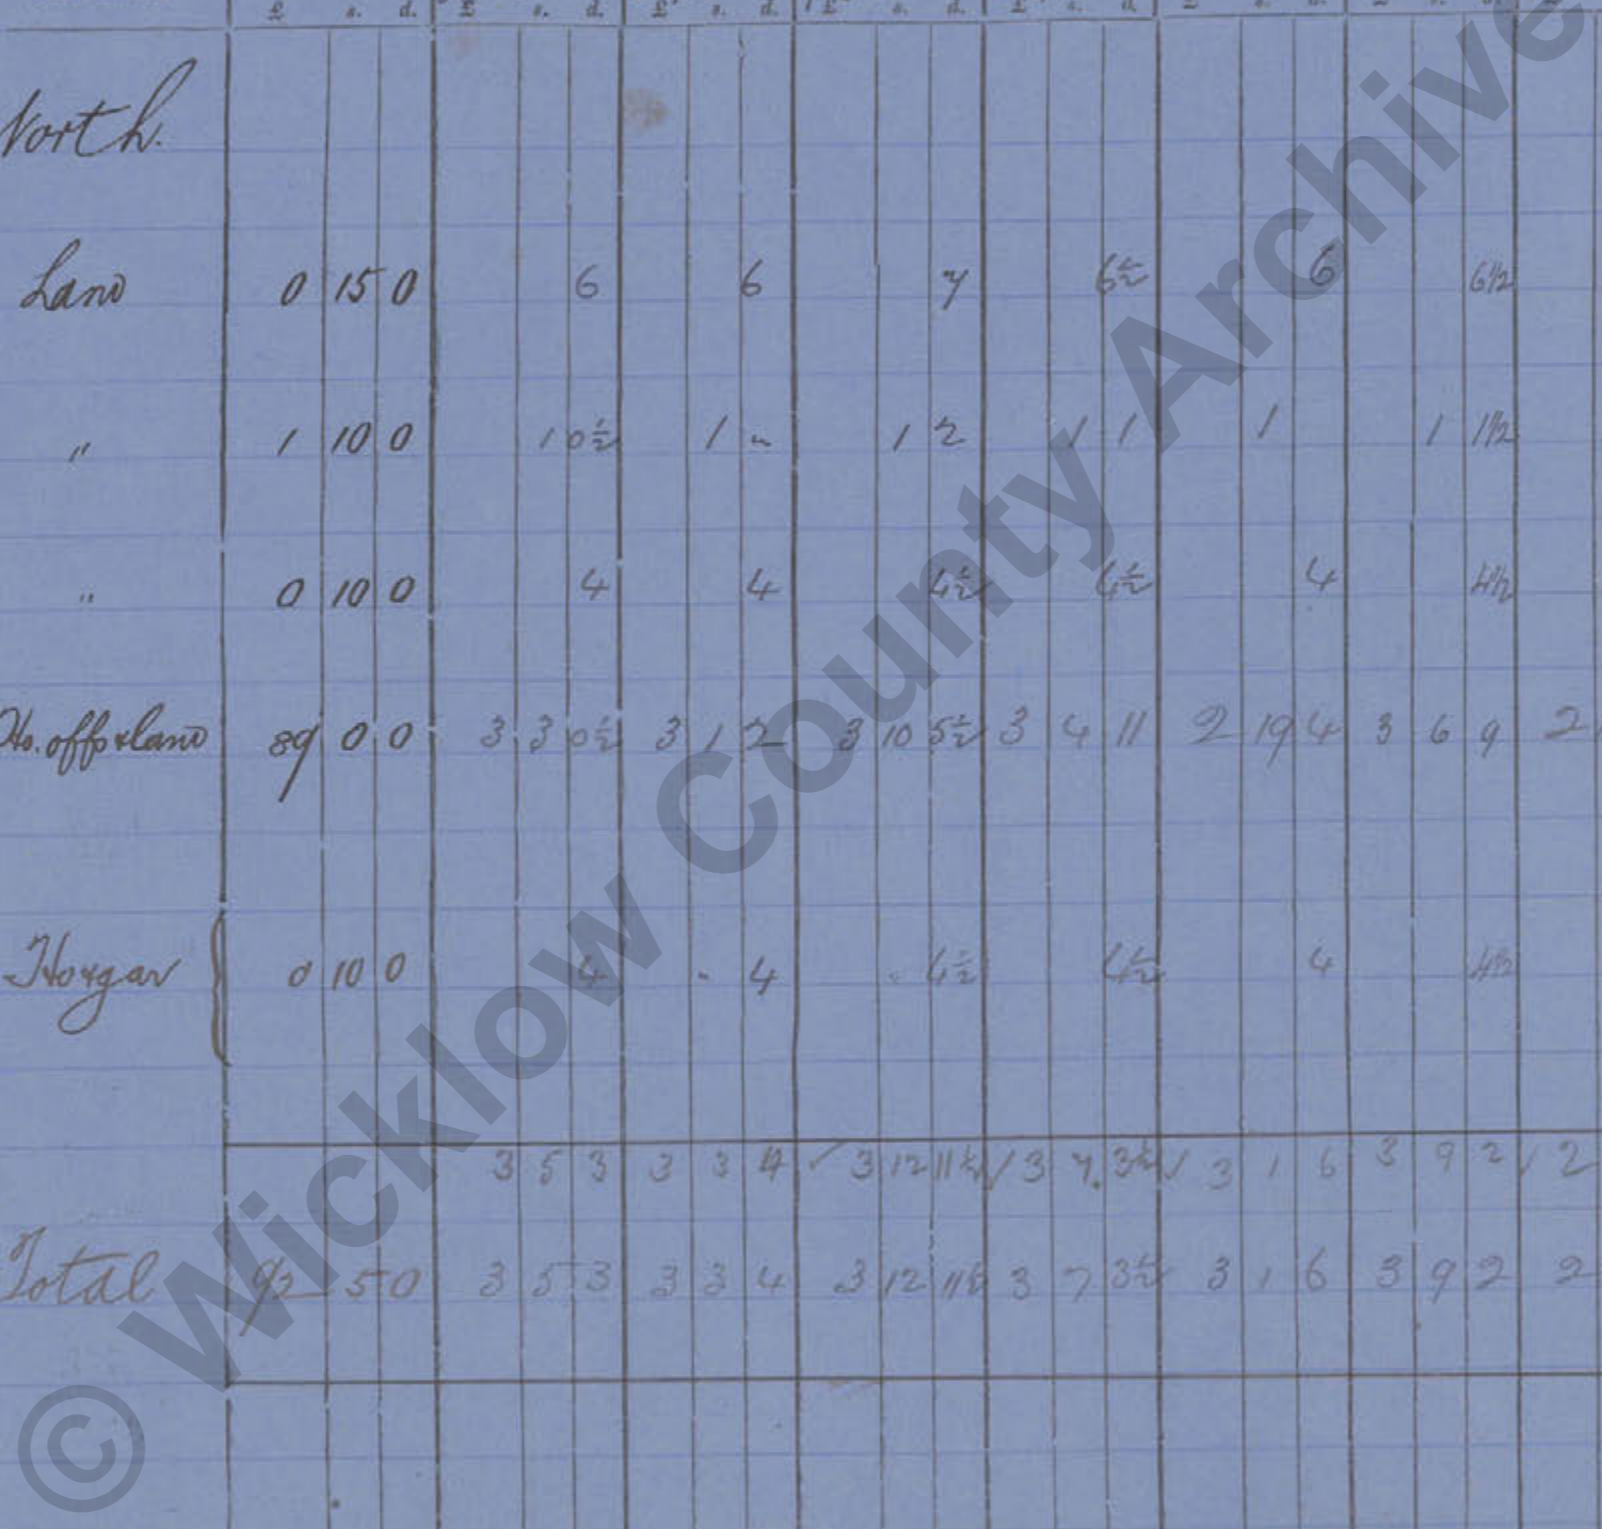 £ s. d. £ s. d. £ s. d. £ s. d. £ s. d. £ s. d. £ s. d.
North.
Land 0 15 0 6 6 7 6½ 6 6½
" 1 10 0 1 0½ 1 " 1 2 1 1 1 1 1½
" 0 10 0 4 4 4½ 4½ 4 4½
Ho. offs & land 89 0 0 3 3 0½ 3 1 2 3 10 5½ 3 4 11 2 19 4 3 6 9 2
Ho & gar { 0 10 0 4 - 4 4½ 4½ 4 4½
3 5 3 3 3 4 ✓ 3 12 11½ ✓ 3 7 3½ ✓ 3 1 6 3 9 2 ✓ 2
Total 92 5 0 3 5 3 3 3 4 3 12 11½ 3 7 3½ 3 1 6 3 9 2 2
© Wicklow County Archive